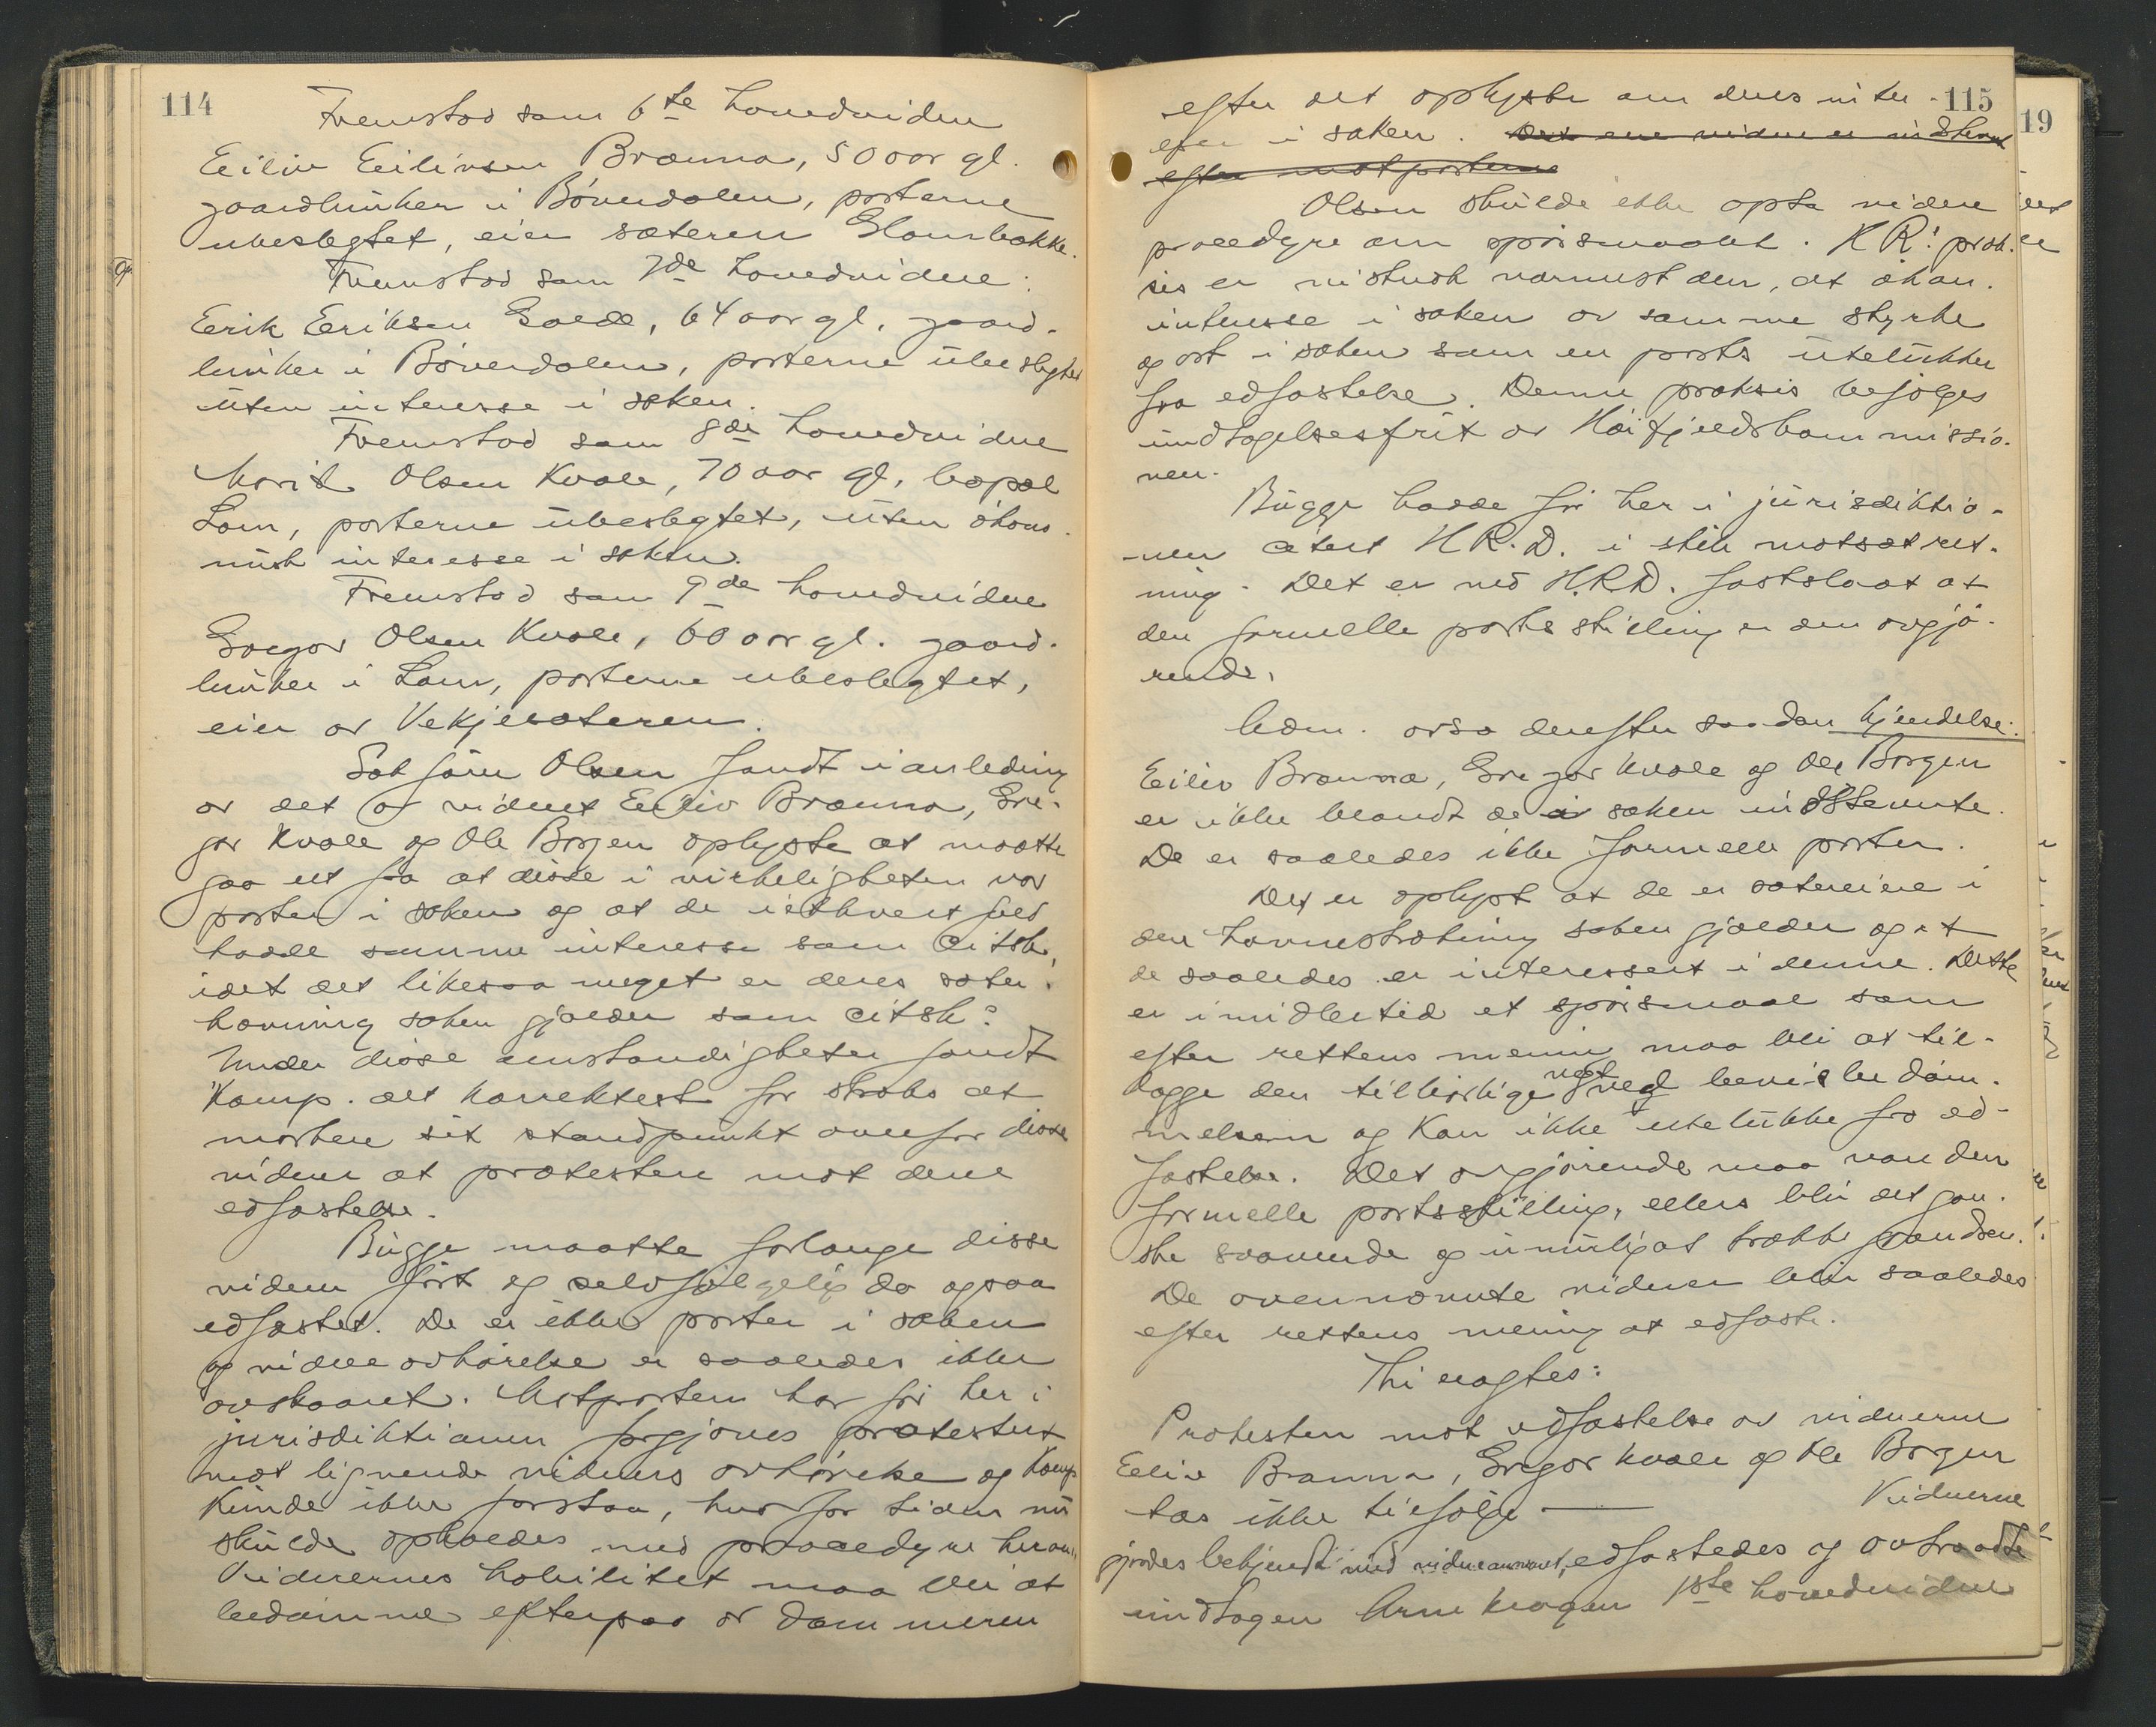 114
Fremstod som 6te hovedvidne
Eiliv Eilivsen Brænna, 50 aar gl.
gaardbruker i Bøverdalen, parterne
ubeslegtet, eier sæteren Glambækk.
Fremstod som 7de hovedvidne:
Erik Eriksen Galde, 64 aar gl., gaard-
bruker i Bøverdalen, parterne ubeslegtet
uten interesse i saken.
Fremstod som 8de hovedvidne
Marit Olsen Kvale, 70 aar gl, bopæl
Lom, parterne ubeslegtet, uten økono-
misk interesse i saken.
Fremstod som 9de hovedvidne
Gregor Olsen Kvale, 60 aar gl. gaard-
bruker i Lom, parterne ubeslegtet,
eier av Vekjesæteren.
Sakfører Olsen fandt i anledning
av det av vidnet Eiliv Brænna, Gre-
gor Kvale og Ole Borgen oplyste at maatte
gaa ut fra at disse i virkeligheten var
parter i saken og at de iethvert fald
hadde samme interesse som citsk,
idet det likesaa meget er deres sæter-
havning saken gjælder som citsk:
Under disse omstændigheter fandt
Komp. det korrektest for straks at
markere sit standpunkt overfor disse
vidner at protestere mot dere
edfæstelse.
Bugge maatte forlange disse
vidner ført og selvfølgelig da ogsaa
edfæstet. De er ikke parter i saken
og vidneavhørelse er saaledes ikke
avskaaret. Motparten har før her i
jurisdiktionen forgjæves protestert
mot lignende vidners avhørelse og Komp
kunde ikke forstaa, hvorfor tiden nu
skulde opholdes med procedyre herom.
Vidnernes habilitet maa bli at
bedømme efterpaa av dommeren
115
efter det oplyste om deres inter-
esse i saken. Det ene vidne er indstevnt
efter motparterne
Olsen skulde ikke opta videre
procedyre om spørsmaalet. H R: prak-
sis er nistusk nærmest den, at økon.
interesse i saken av samme styrke
og art i saken som en parts utelukker
fra edfæstelse. Denne praksis befølges
undtagelsesfrit av Høifjeldskommissio-
nen.
Bugge hadde før her i jurisdiktio-
nen citert H.R.D. i stik motsat ret-
ning. Det er ved H.R.D. fastslaat at
den formelle parts stilling er den avgjø-
rende.
Dom. avsa derefter saadan kjendelse:
Eiliv Brænna, Gregor Kvale og Ole Borgen
er ikke blandt de i saken indstevnte.
De er saaledes ikke formelle parter.
Det er oplyst at de er sætereiere i
den havnestrækning saken gjælder og at
de saaledes er interessert i denne. Dette
er imidlertid et spørsmaal som
efter rettens mening maa bli at til-
lægge den tilbørlige vegt ved bevisbedøm-
melsen og kan ikke utelukke fra ed-
fæstelse. Det avgjørende maa være den
formelle partsstilling, ellers blir det gan-
ske svævende og umulig at trække grændsen.
De ovennævnte vidner blir saaledes
efter rettens mening at edfæste.
Thi eragtes:
Protesten mot edfæstelse av vidnerne
Eiliv Brænna, Gregor Kvale og Ole Borgen
tas ikke tilfølge —
Vidnerne
gjordes bekjendt med vidneansvaret, edfæstedes og avtraadte
undtagen Arne Kragen 1ste hovedvidne
19